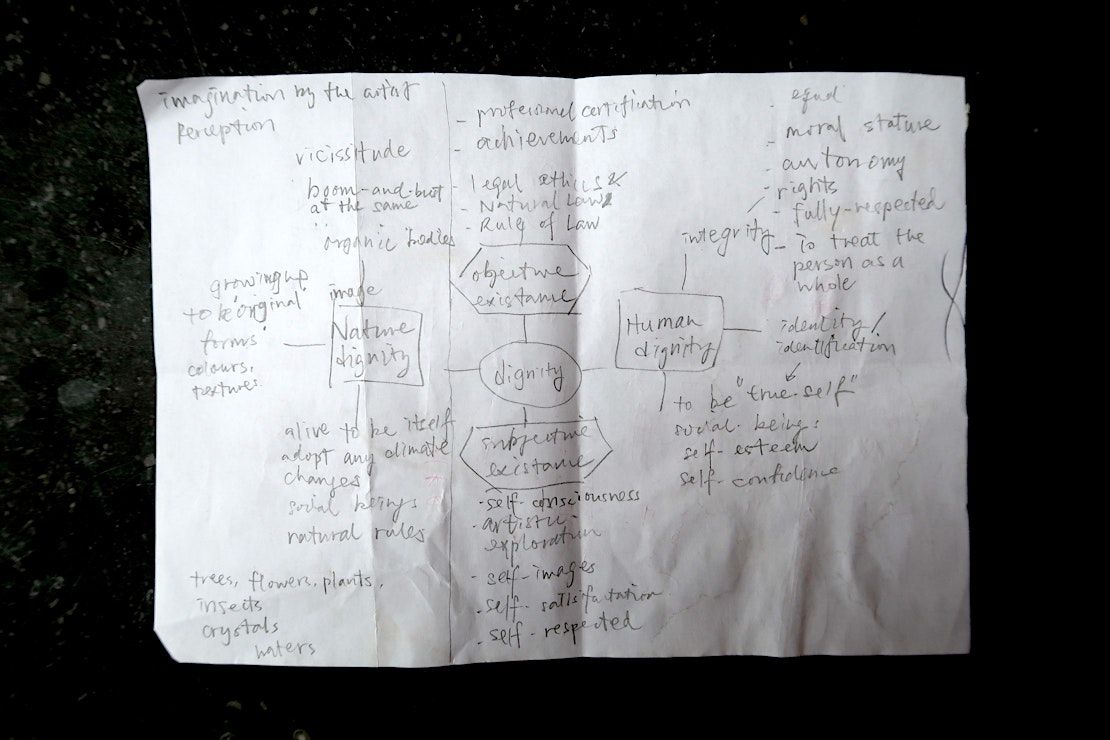 imagination by the artist
Perception
vicissitude
boom-and-bust
at the same
organic bodies
image
growing up
to be original
forms
colours,
textures
Nature
dignity
alive to be itself
adopt any climate
changes
social beings
natural rules
trees, flowers, plants,
insects
crystals
- professional certification
- achievements
- legal ethics &
- Natural Law &
- Rule of Law
objective
existance
dignity
subjective
existance
- self-consciousness
- artistic
exploration
- self-images
- self-satisfactation
- self-respected
- equal
- moral stature
- autonomy
- rights
- fully-respected
integrity
- to treat the
person as a
whole
Human
dignity
identity/
identification
to be "true-self"
social beings
self-esteem
self-confidence